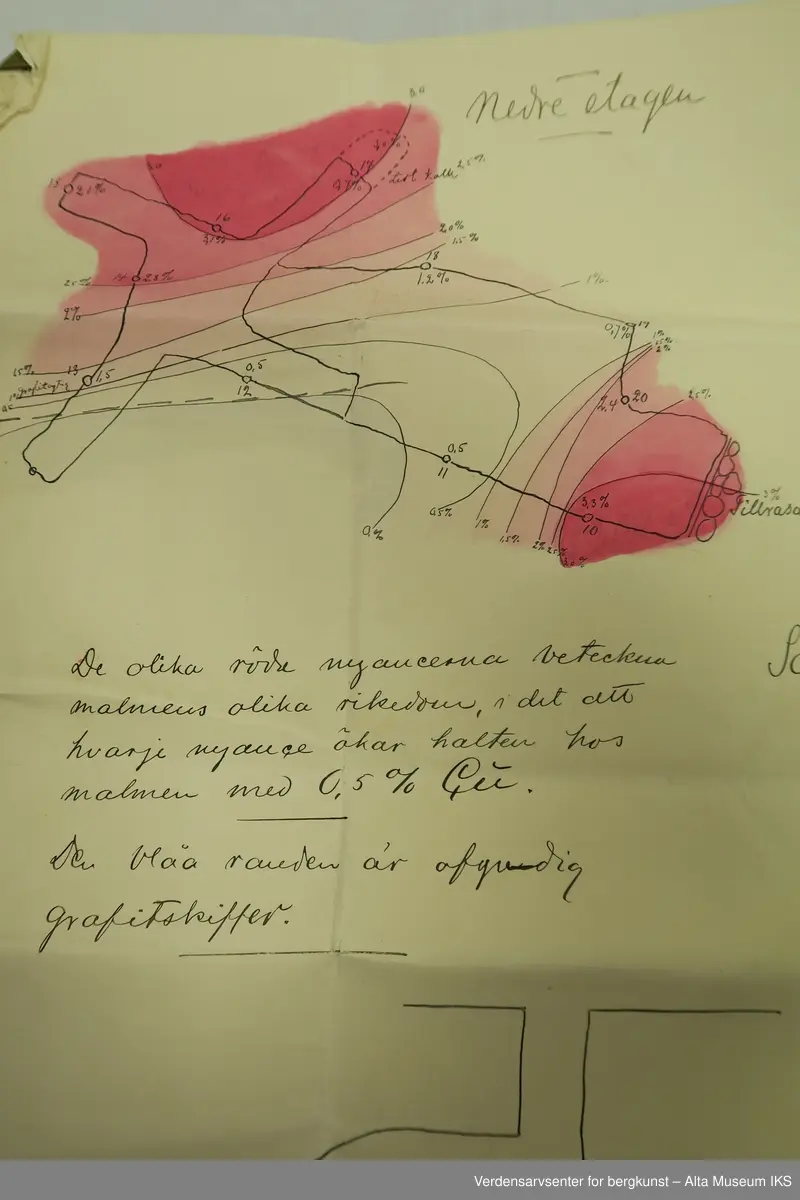 Nedre etagen
3.0
3.0
4.0%
17
3.7%
Likt Kalk
2,5%
15
2.1%
16
3.1%
2.0%
1.5%
18
1.2%
14
2.3%
2.5%
2%
1%
0,7%
19
1%
1.5%
2%
1.5%
13
1,5
grafitartig
0,5
12
2.4
20
2.5%
0,5
11
3,3%
10
3%
Tillrasa
0.%
0.5%
1%
1.5%
2%
2.5%
3.0%
De olika röda nyancerna beteckna
malmens olika rikedom, i det att
hvarje nyance ökar halten hos
malmen med 0,5% Cu.
Den blåa randen är ofyndig
grafitskiffer.
Verdensarvsenter for bergkunst – Alta Museum IKS